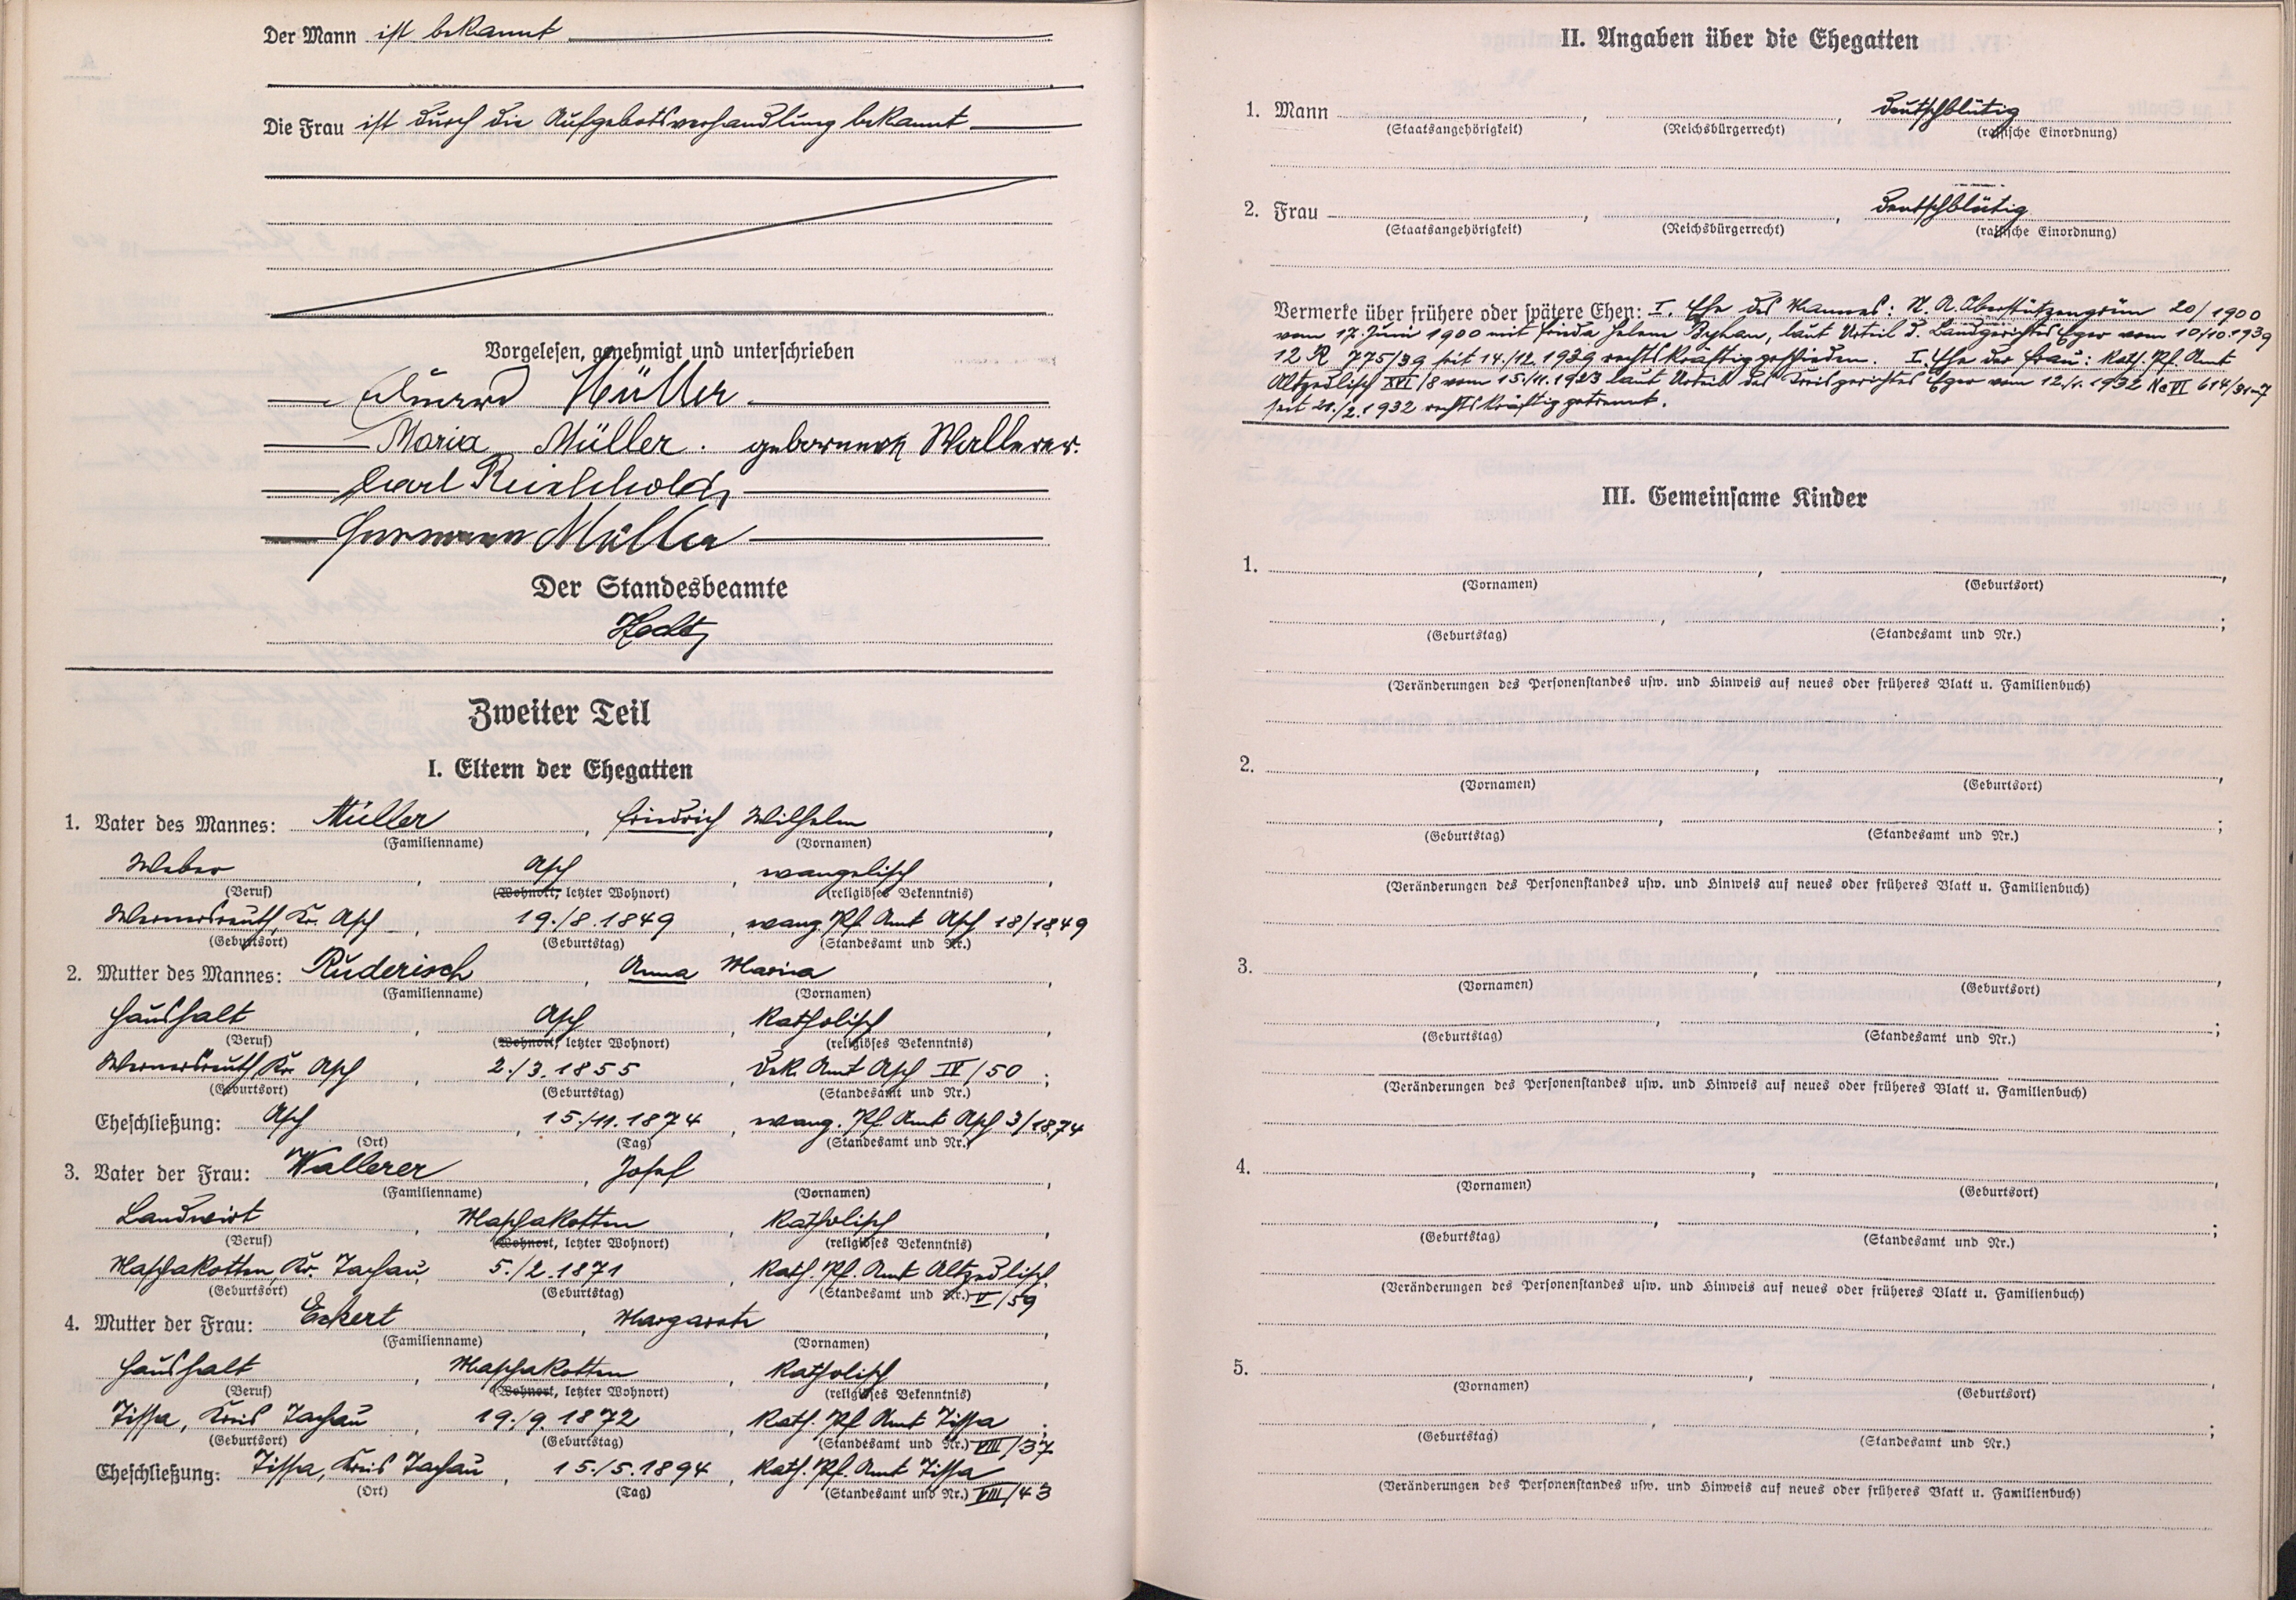 Der Mann ist bekannt
Die Frau ist durch die Aufgebotsverhandlung bekannt
Vorgelesen, genehmigt und unterschrieben
Eduard Müller
Maria Müller. geborenen Wallerer.
Carl
Hermann Müller
Der Standesbeamte
Zweiter Teil
I. Eltern der Ehegatten
1. Vater des Mannes: Müller, Friedrich Wilhelm,
(Familienname) (Vornamen)
Weber, Asch, evangelisch,
(Beruf) (Wohnort, letzter Wohnort) (religiöses Bekenntnis)
Wernersreuth, Kr. Asch, 19./8.1849, evang. Pf. Amt Asch 18/1849
(Geburtsort) (Geburtstag) (Standesamt und Nr.)
2. Mutter des Mannes: Ruderisch, Anna Maria,
(Familienname) (Vornamen)
Haushalt, Asch, Katholisch,
(Beruf) (Wohnort, letzter Wohnort) (religiöses Bekenntnis)
Wernersreuth, Kr. Asch, 2./3.1855, Dek. Amt Asch IV/50;
(Geburtsort) (Geburtstag) (Standesamt und Nr.)
Eheschließung: Asch, 15./11.1874, evang. Pf Amt Asch 3/1874
(Ort) (Tag) (Standesamt und Nr.)
3. Vater der Frau: Wallerer, Josef,
(Familienname) (Vornamen)
Landwirt, Maschakotten, Katholisch,
(Beruf) (Wohnort, letzter Wohnort) (religiöses Bekenntnis)
Maschakotten, Kr. Tachau, 5./2.1871, Kath. Pf. Amt Altzedlisch,
(Geburtsort) (Geburtstag) (Standesamt und Nr.) V/59
4. Mutter der Frau: Eckert, Margarete,
(Familienname) (Vornamen)
Haushalt, Maschakotten, Katholisch,
(Beruf) (Wohnort, letzter Wohnort) (religiöses Bekenntnis)
Tissa, Kreis Tachau, 19./9.1872, Kath. Pf Amt Tissa;
(Geburtsort) (Geburtstag) (Standesamt und Nr.) VIII/37
Eheschließung: Tissa, Kreis Tachau, 15./5.1894, Kath. Pf. Amt Tissa
(Ort) (Tag) (Standesamt und Nr.) VIII/43
II. Angaben über die Ehegatten
1. Mann , , deutschblütig
(Staatsangehörigkeit) (Reichsbürgerrecht) (rassische Einordnung)
2. Frau , , deutschblütig
(Staatsangehörigkeit) (Reichsbürgerrecht) (rassische Einordnung)
Vermerke über frühere oder spätere Ehen: I. Ehe des Mannes: St. A. Oberstützengrün 20/1900
vom 17. Juni 1900 mit Helene laut Urteil d. Landgerichtes Eger vom 10/10.1939
12 R 775/39 seit 14./12.1939 rechtskräftig geschieden. I. Ehe der Frau: Kath. Pf. Amt
Altzedlisch XVI/8 vom 15./11.1923 laut Urteil des Kreisgerichtes Eger vom 12./1.1932 614/31-7
seit 21./2.1932 rechtskräftig getrennt.
III. Gemeinsame Kinder
1. , ,
(Vornamen) (Geburtsort)
, ;
(Geburtstag) (Standesamt und Nr.)
(Veränderungen des Personenstandes usw. und Hinweis auf neues oder früheres Blatt u. Familienbuch)
2. , ,
(Vornamen) (Geburtsort)
, ;
(Geburtstag) (Standesamt und Nr.)
(Veränderungen des Personenstandes usw. und Hinweis auf neues oder früheres Blatt u. Familienbuch)
3. , ,
(Vornamen) (Geburtsort)
, ;
(Geburtstag) (Standesamt und Nr.)
(Veränderungen des Personenstandes usw. und Hinweis auf neues oder früheres Blatt u. Familienbuch)
4. , ,
(Vornamen) (Geburtsort)
, ;
(Geburtstag) (Standesamt und Nr.)
(Veränderungen des Personenstandes usw. und Hinweis auf neues oder früheres Blatt u. Familienbuch)
5. , ,
(Vornamen) (Geburtsort)
, ;
(Geburtstag) (Standesamt und Nr.)
(Veränderungen des Personenstandes usw. und Hinweis auf neues oder früheres Blatt u. Familienbuch)